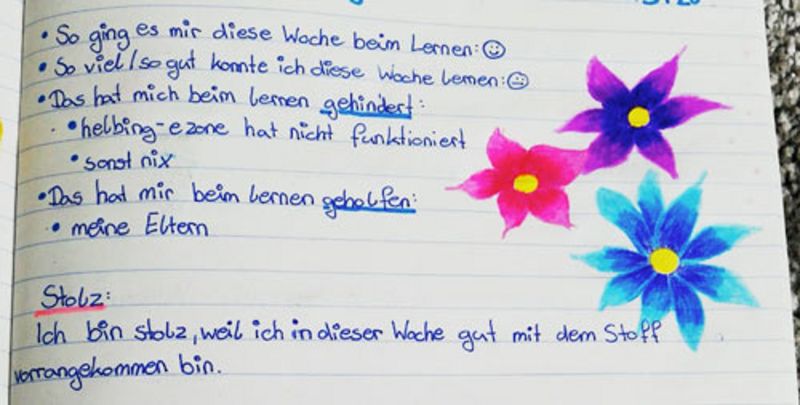 • So ging es mir diese Woche beim Lernen: ☺
• So viel/so gut konnte ich diese Woche lernen: 😐
• Das hat mich beim lernen gehindert:
• helbing-ezone hat nicht funktioniert
• sonst nix
• Das hat mir beim lernen geholfen:
• meine Eltern
Stolz:
Ich bin stolz, weil ich in dieser Woche gut mit dem Stoff
vorrangekommen bin.